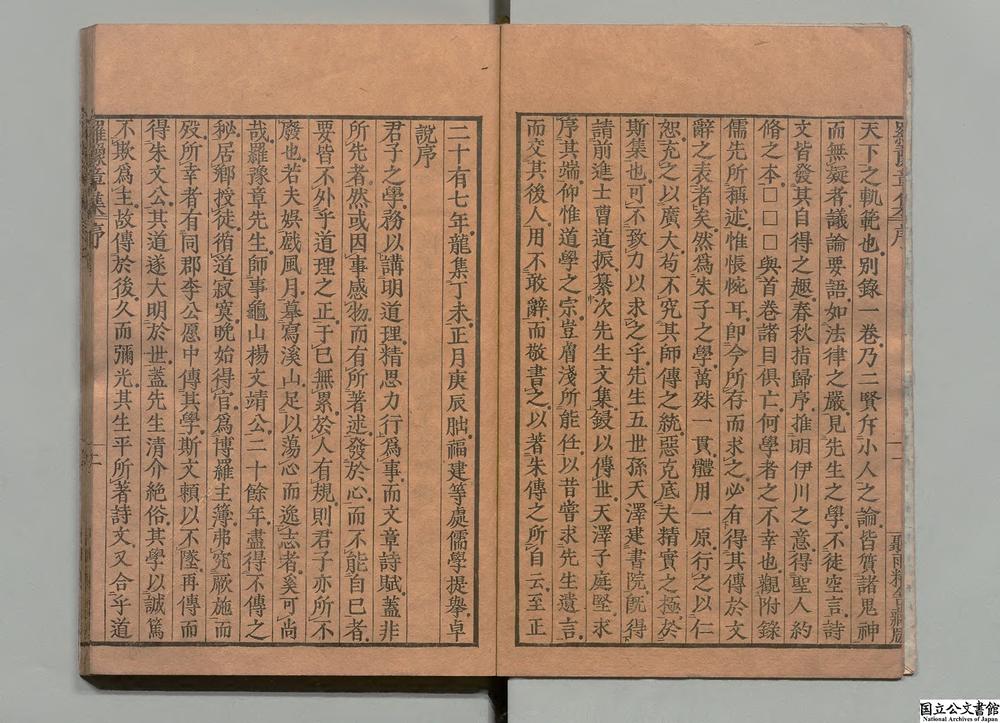 天下之軌範也別錄一卷乃二賢斥小人之論皆質諸鬼神
而無疑者議論要語如法律之嚴見先生之學不徒空言詩
文皆發其自得之趣春秋指歸序推明伊川之意得聖人約
脩之本□□□與首卷諸目俱亡何學者之不幸也觀附錄
儒先所稱述惟悵惋耳卽今所存而求之必有得其傳於文
辭之表者矣然爲朱子之學萬殊一貫體用一原行之以仁
恕充之以廣大苟不究其師傳之統惡克底夫精實之極於
斯集也可不致力以求之乎先生五世孫天澤建書院旣得
請前進士曹道振纂次先生文集鋟以傳世天澤子庭堅求
序其端仰惟道學之宗豈膚淺所能任以昔嘗求先生遺言
而交其後人用不敢辭而敬書之以著朱傳之所自云至正
二十有七年龍集丁未正月庚辰朏福建等處儒學提擧卓
說序
君子之學務以講明道理精思力行爲事而文章詩賦蓋非
所先者然或因事感物而有所著述發於心而不能自已者
要皆不外乎道理之正于已無累於人有規則君子亦所不
廢也若夫娛戲風月摹寫溪山足以蕩心而逸志者奚可尚
哉羅豫章先生師事龜山楊文靖公二十餘年盡得不傳之
秘居鄉授徒循道寂寞晩始得官爲博羅主簿弗究厥施而
歿所幸者有同郡李公愿中傳其學斯文賴以不墜再傳而
得朱文公其道遂大明於世蓋先生清介絶俗其學以誠篤
不欺爲主故傳於後久而彌光其生平所著詩文又合乎道
羅豫章集 序
二
国立公文書館
National Archives of Japan